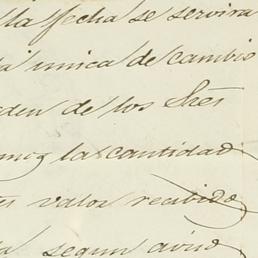 la fecha se servira
a unica de cambio
rden de los Sres
mos la cantidad
valor recibido
a segun aviso